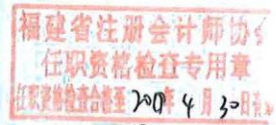 福建省注册会计师协会
任职资格检查专用章
任职资格检查合格至 年4月30日有效